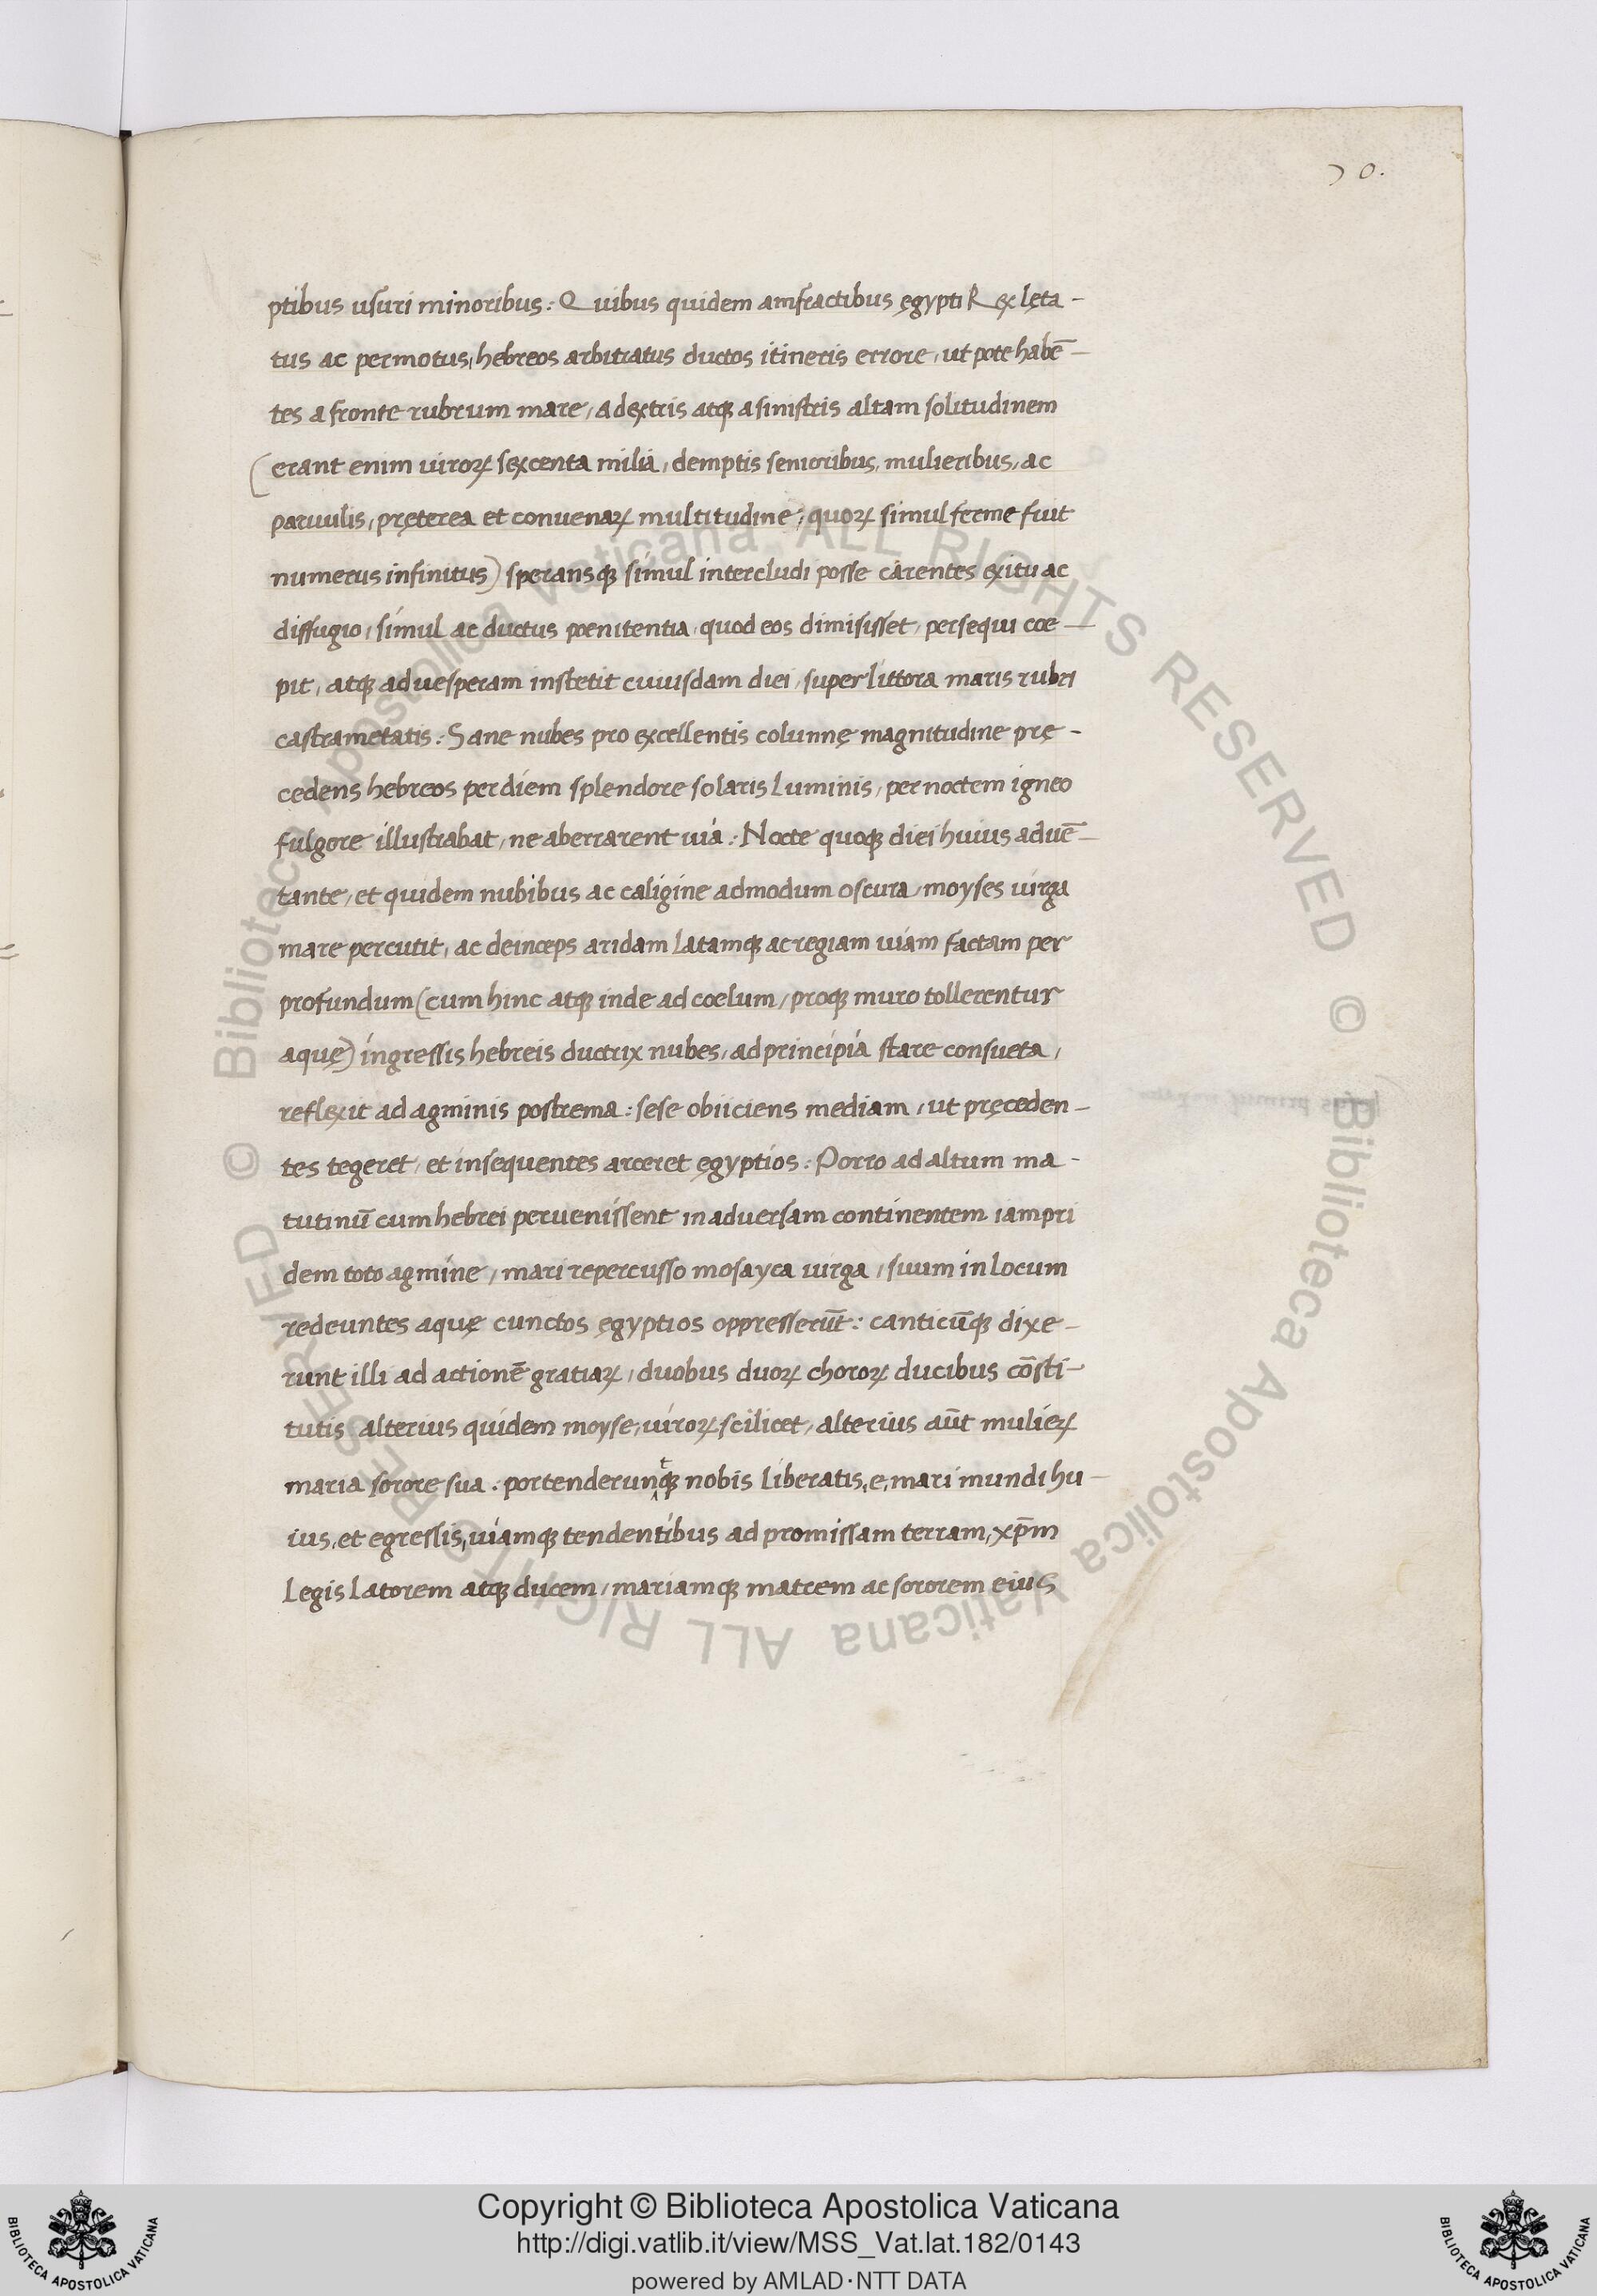 70.
ptibus usuri minoribus: Quibus quidem amfractibus ęgypti Rex lęta-
tus ac permotus, hebreos arbitratus ductos itineris errore, ut pote habē-
tes a fronte rubrum mare, a dextris atqꝫ a sinistris altam solitudinem
(erant enim uiroꝝ sexcenta milia, demptis senioribus, mulieribus, ac
paruulis, pręterea et conuenaꝝ multitudine; quoꝝ simul ferme fuit
numerus infinitus) speransqꝫ simul intercludi posse carentes exitu ac
diffugio, simul ac ductus poenitentia, quod eos dimisisset, persequi coe-
pit, atqꝫ ad uesperam institit cuiusdam diei, super littora maris rubri
castrametatis: Sane nubes pro excellentis columnę magnitudine prę-
cedens hebreos per diem splendore solaris luminis, per noctem igneo
fulgore illustrabat, ne aberrarent uia: Nocte quoqꝫ diei huius aduē-
tante, et quidem nubibus ac caligine admodum oscura, moyses uirga
mare percutit, ac deinceps aridam latamqꝫ ac regiam uiam factam per
profundum (cum hinc atqꝫ inde ad coelum, proqꝫ muro tollerentur
aquę) ingressis hebreis ductrix nubes, ad principia stare consueta,
reflexit ad agminis postrema: sese obiiciens mediam, ut pręceden-
tes tegeret, et insequentes arceret ęgyptios: Porro ad altum ma-
tutinū cum hebrei peruenissent in aduersam continentem iam pri
dem toto agmine, mari repercusso mosayca uirga, suum in locum
redeuntes aquę cunctos ęgyptios oppresserūt: canticūqꝫ dixe-
runt illi ad actionē gratiaꝝ, duobus duoꝝ choroꝝ ducibus cōsti-
tutis alterius quidem moyse, uiroꝝ scilicet, alterius aūt mulieꝝ
maria sorore sua: portenderuntqꝫ nobis liberatis, e, mari mundi hu-
ius, et egressis, uiamqꝫ tendentibus ad promissam terram, xp̄m
legis latorem atqꝫ ducem, mariamqꝫ matrem ac sororem eius
© Biblioteca Apostolica Vaticana ALL RIGHTS RESERVED © Biblioteca Apostolica Vaticana ALL RIGHTS RESERVED
Copyright © Biblioteca Apostolica Vaticana
http://digi.vatlib.it/view/MSS_Vat.lat.182/0143
powered by AMLAD·NTT DATA
BIBLIOTECA APOSTOLICA VATICANA
BIBLIOTECA APOSTOLICA VATICANA